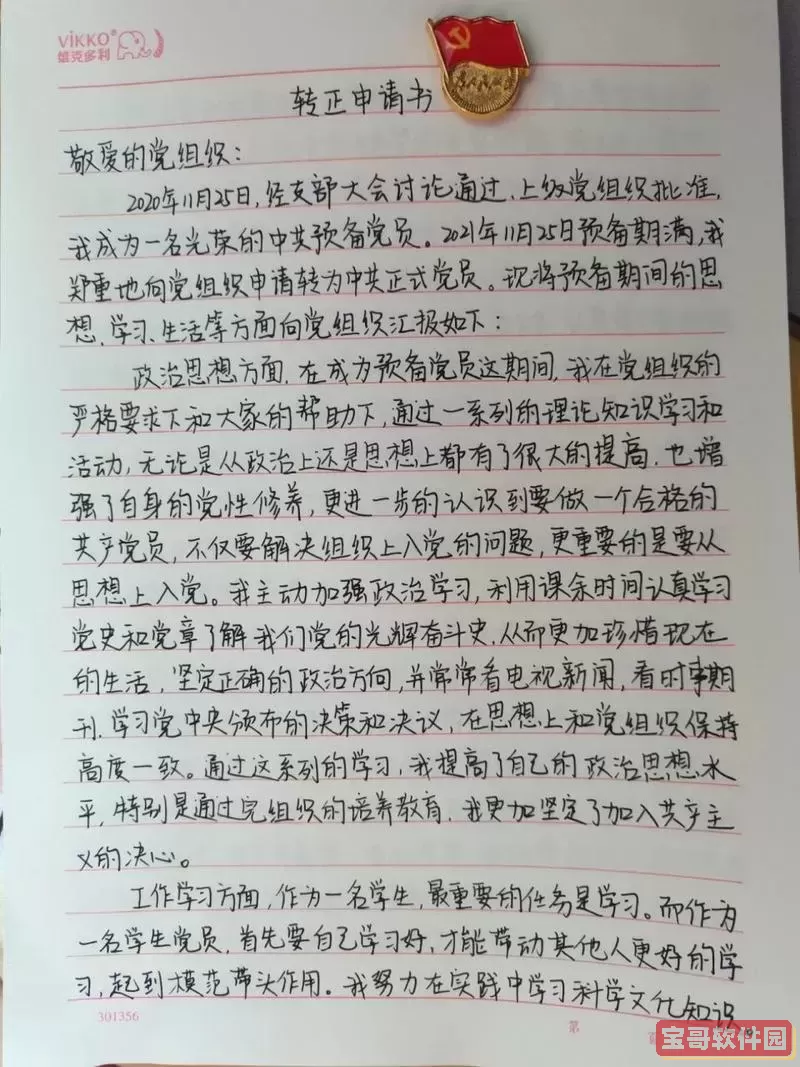 ViKKO®
维克多利
转正申请书
敬爱的党组织：
2020年11月25日，经支部大会讨论通过，上级党组织批准，
我成为一名光荣的中共预备党员。2021年11月25日预备期满，我
郑重地向党组织申请转为中共正式党员。现将预备期间的思
想、学习、生活等方面向党组织汇报如下：
政治思想方面，在成为预备党员这期间，我在党组织的
严格要求下和大家的帮助下，通过一系列的理论知识学习和
活动，无论是从政治上还是思想上都有了很大的提高，也增
强了自身的党性修养，更进一步的认识到要做一个合格的
共产党员，不仅要解决组织上入党的问题，更重要的是要从
思想上入党。我主动加强政治学习，利用课余时间认真学习
党史和党章了解我们党的光辉奋斗史，从而更加珍惜现在
的生活，坚定正确的政治方向，并常常看电视新闻，看时事期
刊，学习党中央颁布的决策和决议，在思想上和党组织保持
高度一致。通过这系列的学习，我提高了自己的政治思想水
平，特别是通过完组织的培养教育，我更加坚定了加入共产主
义的决心。
工作学习方面，作为一名学生，最重要的任务是学习。而作为
一名学生党员，首先要自己学习好，才能带动其他人更好的学
习，起到模范带头作用。我努力在实践中学习科学文化知识
301356
第
宝哥软件园